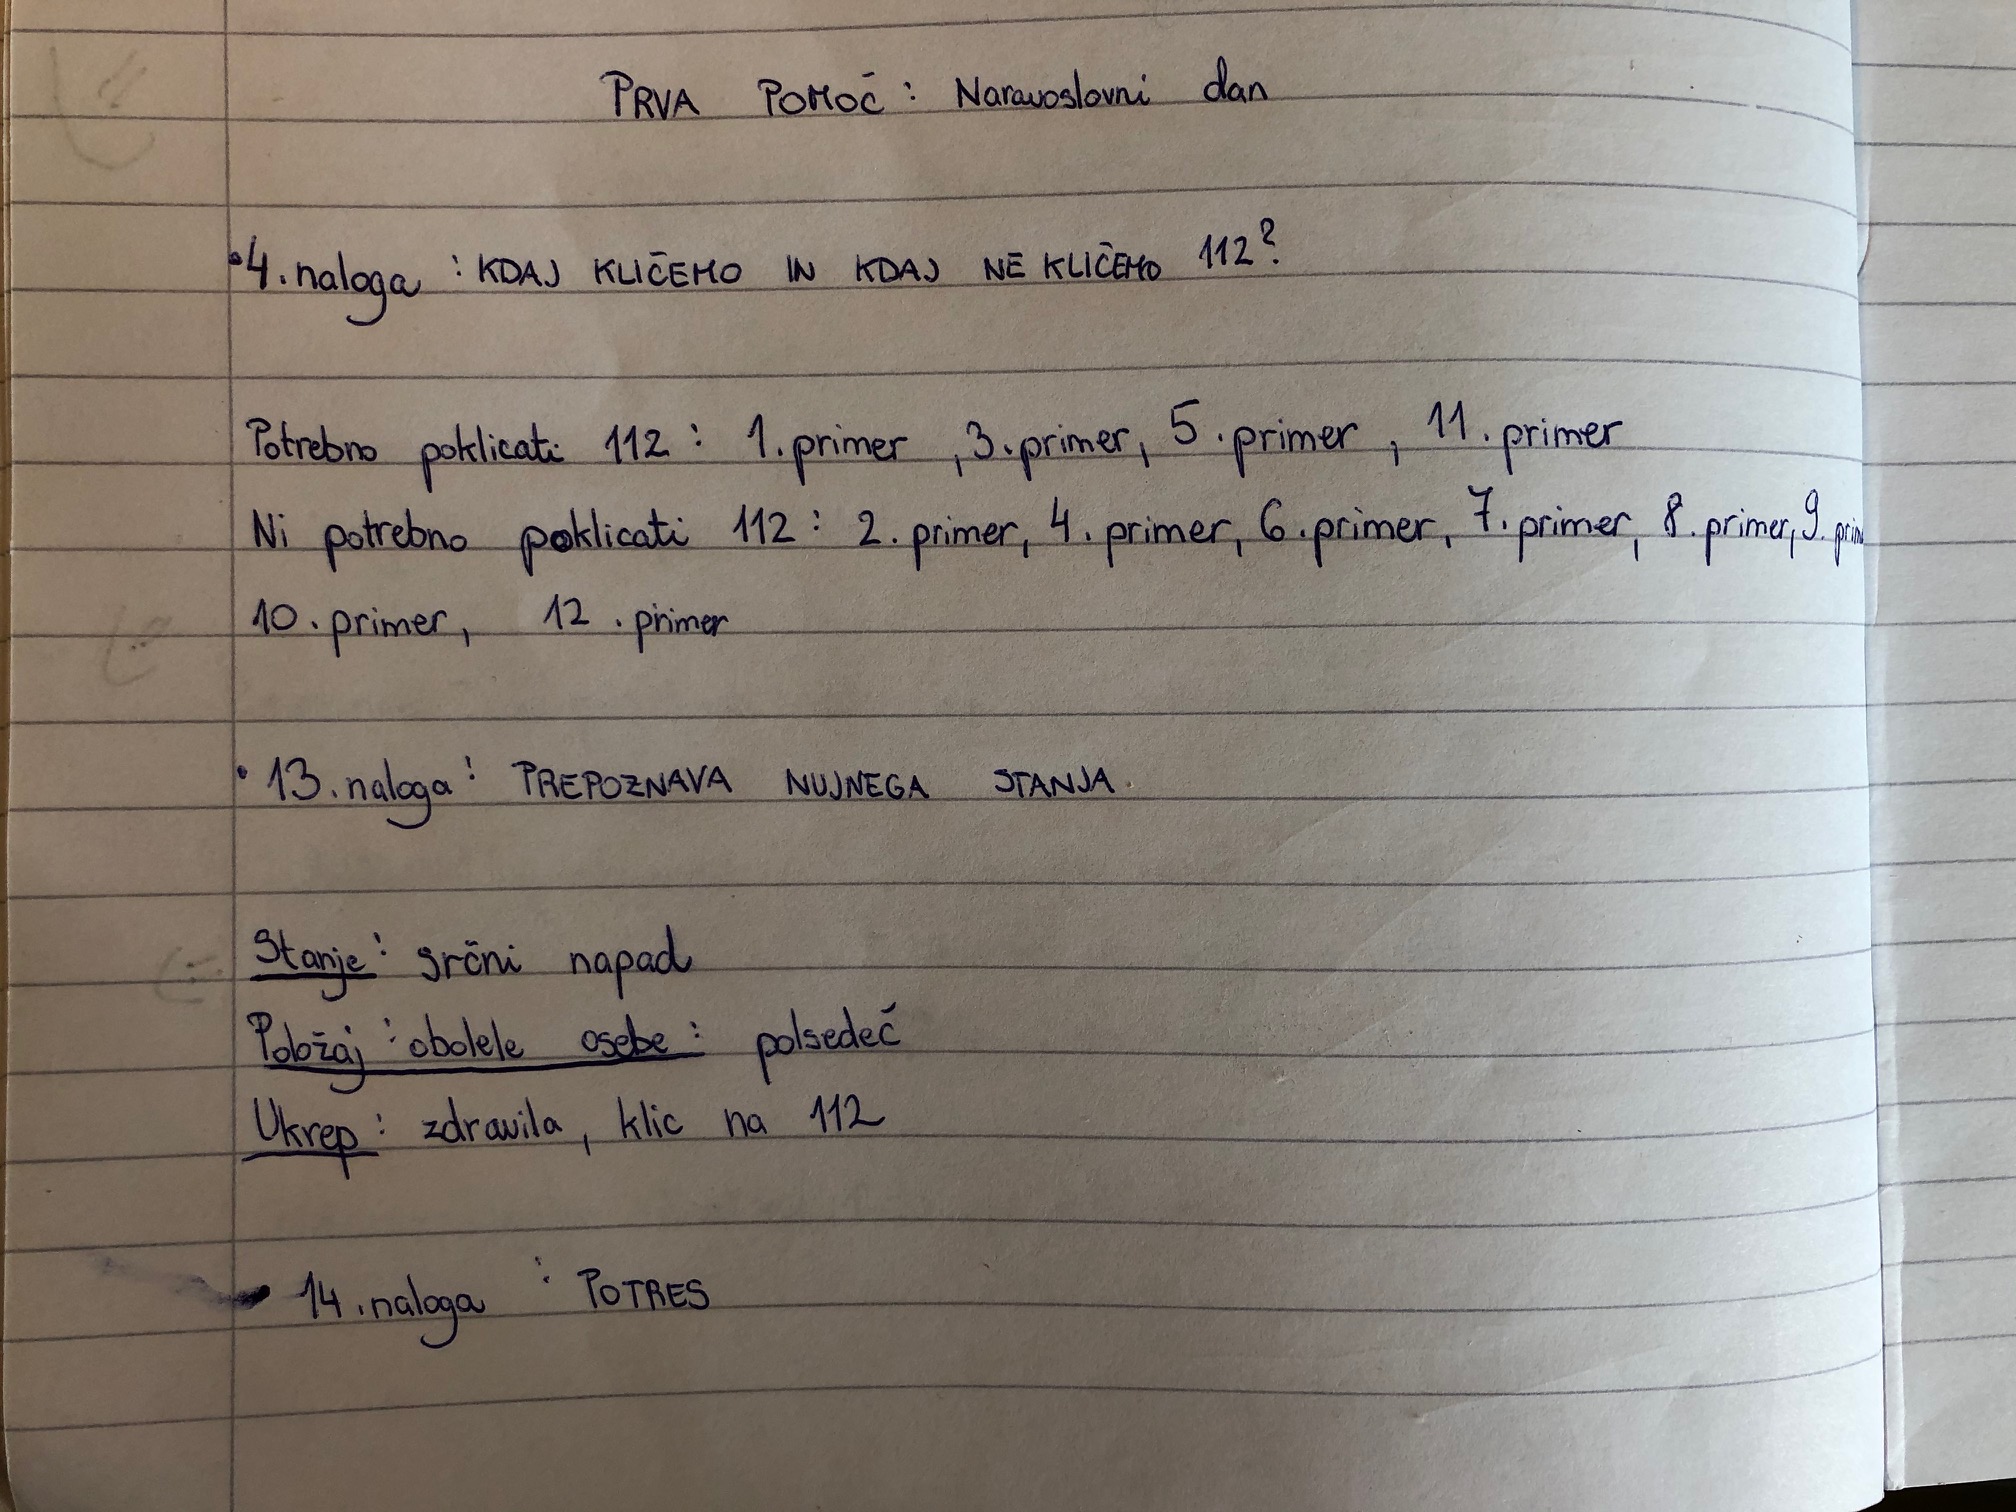 PRVA POMOČ: Naravoslovni dan
• 4. naloga : KDAJ KLIČEMO IN KDAJ NE KLIČEMO 112?
Potrebno poklicati 112 : 1. primer , 3. primer, 5. primer , 11. primer
Ni potrebno poklicati 112 : 2. primer, 4. primer, 6. primer, 7. primer, 8. primer, 9.
10. primer, 12. primer
• 13. naloga : PREPOZNAVA NUJNEGA STANJA.
Stanje : srčni napad
Položaj : obolele osebe : polsedeč
Ukrep : zdravila, klic na 112
• 14. naloga : POTRES